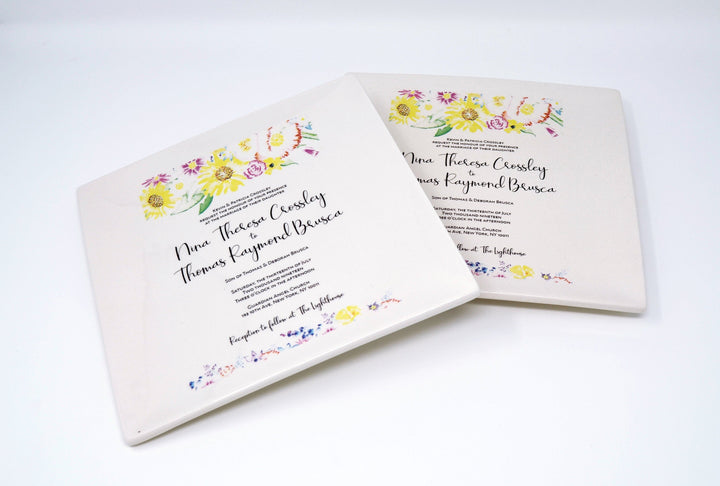 Kevin & Patricia Crossley
request the honour of your presence
at the marriage of their daughter
Nina Theresa Crossley
to
Thomas Raymond Brusca
Son of Thomas & Deborah Brusca
Saturday, the thirteenth of July
Two thousand nineteen
Three o'clock in the afternoon
Guardian Angel Church
193 10th Ave, New York, NY 10011
Reception to follow at The Lighthouse
Kevin & Patricia Crossley
request the honour of your presence
at the marriage of their daughter
Nina Theresa Crossley
to
Thomas Raymond Brusca
Son of Thomas & Deborah Brusca
Saturday, the thirteenth of July
Two thousand nineteen
o'clock in the afternoon
Guardian Angel Church
Ave, New York, NY 10011
to follow at The Lighthouse